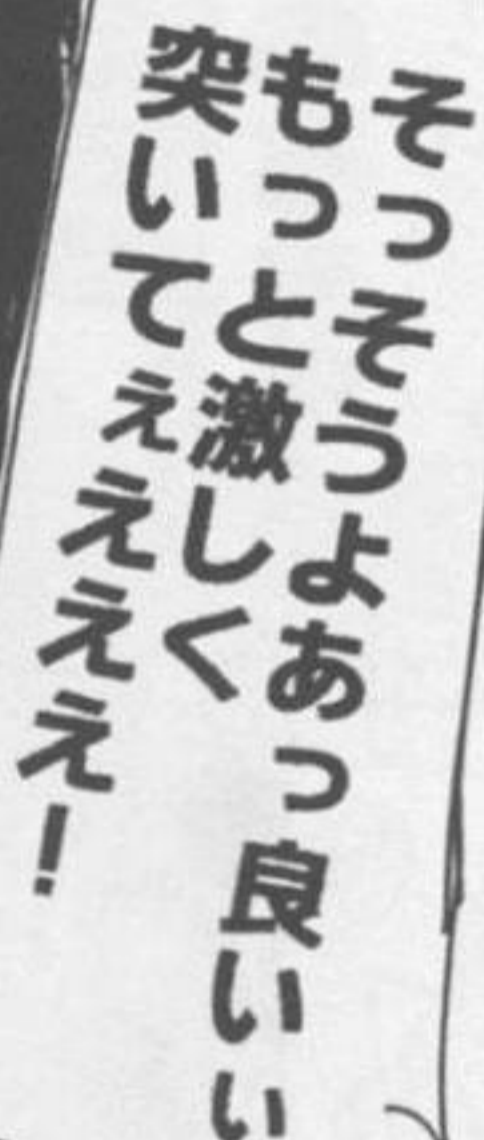 そっそうよあっ良いぃ
もっと激しく
突いてぇえええ！